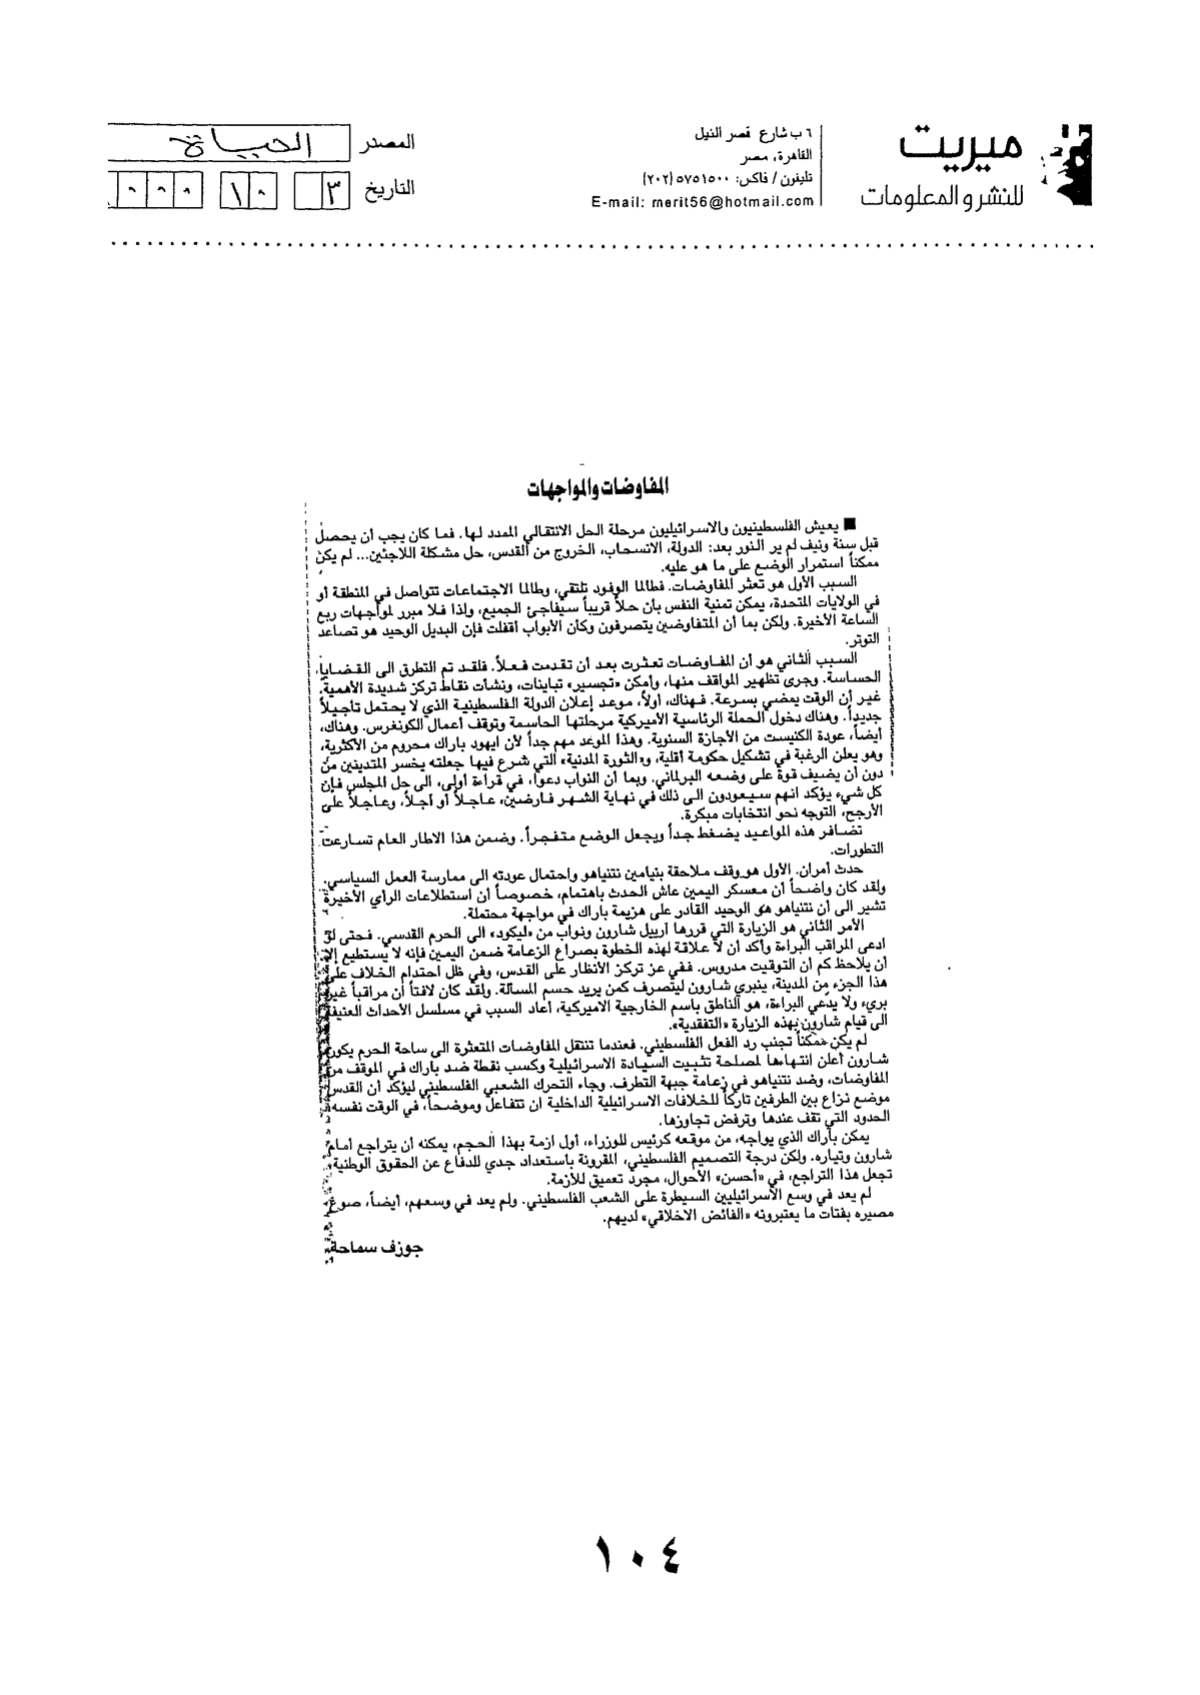 ميريت
للنشر والمعلومات
٦ ب شارع قصر النيل
القاهرة، مصر
تليفون / فاكس: ٥٧٥١٥٠٠ (٢٠٢)
E-mail: merit56@hotmail.com
المصدر الحياة
التاريخ ٣ ١٠ ٠٠٠
المفاوضات والمواجهات
■ يعيش الفلسطينيون والاسرائيليون مرحلة الحل الانتقالي الممدد لها. فما كان يجب أن يحصل
قبل سنة ونيف لم ير النور بعد: الدولة، الانسحاب، الخروج من القدس، حل مشكلة اللاجئين... لم يكن
ممكناً استمرار الوضع على ما هو عليه.
السبب الأول هو تعثر المفاوضات. فطالما الوفود تلتقي، وطالما الاجتماعات تتواصل في المنطقة أو
في الولايات المتحدة، يمكن تمنية النفس بأن حلاً قريباً سيفاجئ الجميع، ولذا فلا مبرر لمواجهات ربع
الساعة الأخيرة. ولكن بما أن المتفاوضين يتصرفون وكأن الأبواب أقفلت فإن البديل الوحيد هو تصاعد
التوتر.
السبب الثاني هو أن المفاوضات تعثرت بعد أن تقدمت فعلاً. فلقد تم التطرق الى القضايا
الحساسة. وجرى تظهير المواقف منها، وأمكن «تجسير» تباينات، ونشأت نقاط تركز شديدة الأهمية.
غير أن الوقت يمضي بسرعة. فهناك، أولاً، موعد إعلان الدولة الفلسطينية الذي لا يحتمل تأجيلاً
جديداً. وهناك دخول الحملة الرئاسية الأميركية مرحلتها الحاسمة وتوقف أعمال الكونغرس. وهناك،
أيضاً، عودة الكنيست من الأجازة السنوية. وهذا الموعد مهم جداً لأن ايهود باراك محروم من الأكثرية،
وهو يعلن الرغبة في تشكيل حكومة أقلية، و«الثورة المدنية» التي شرع فيها جعلته يخسر المتدينين من
دون أن يضيف قوة على وضعه البرلماني. وبما أن النواب دعوا، في قراءة أولى، الى حل المجلس فإن
كل شيء يؤكد انهم سيعودون الى ذلك في نهاية الشهر فارضين، عاجلاً أو آجلاً، وعاجلاً على
الأرجح، التوجه نحو انتخابات مبكرة.
تضافر هذه المواعيد يضغط جداً ويجعل الوضع متفجراً. وضمن هذا الاطار العام تسارعت
التطورات.
حدث أمران. الأول هو وقف ملاحقة بنيامين نتنياهو واحتمال عودته الى ممارسة العمل السياسي.
ولقد كان واضحاً أن معسكر اليمين عاش الحدث باهتمام، خصوصاً أن استطلاعات الرأي الأخيرة
تشير الى أن نتنياهو هو الوحيد القادر على هزيمة باراك في مواجهة محتملة.
الأمر الثاني هو الزيارة التي قررها آرييل شارون ونواب من «ليكود» الى الحرم القدسي. فحتى لو
ادعى المراقب البراءة وأكد أن لا علاقة لهذه الخطوة بصراع الزعامة ضمن اليمين فإنه لا يستطيع إلا
أن يلاحظ كم أن التوقيت مدروس. ففي عز تركز الأنظار على القدس، وفي ظل احتدام الخلاف على
هذا الجزء من المدينة، ينبري شارون ليتصرف كمن يريد حسم المسألة. ولقد كان لافتاً أن مراقباً غير
بريء ولا يدّعي البراءة، هو الناطق باسم الخارجية الاميركية، أعاد السبب في مسلسل الأحداث العنيفة
الى قيام شارون بهذه الزيارة «التفقدية».
لم يكن ممكناً تجنب رد الفعل الفلسطيني. فعندما تنتقل المفاوضات المتعثرة الى ساحة الحرم يكون
شارون أعلن انتهاءها لمصلحة تثبيت السيادة الاسرائيلية وكسب نقطة ضد باراك في الموقف من
المفاوضات، وضد نتنياهو في زعامة جبهة التطرف. وجاء التحرك الشعبي الفلسطيني ليؤكد أن القدس
موضع نزاع بين الطرفين تاركاً للخلافات الاسرائيلية الداخلية ان تتفاعل وموضحاً، في الوقت نفسه،
الحدود التي تقف عندها وترفض تجاوزها.
يمكن باراك الذي يواجه، من موقعه كرئيس للوزراء، أول ازمة بهذا الحجم، يمكنه أن يتراجع أمام
شارون وتياره. ولكن درجة التصميم الفلسطيني، المقرونة باستعداد جدي للدفاع عن الحقوق الوطنية،
تجعل هذا التراجع، في «أحسن» الأحوال، مجرد تعميق للأزمة.
لم يعد في وسع الاسرائيليين السيطرة على الشعب الفلسطيني. ولم يعد في وسعهم، أيضاً، صوغ
مصيره بفتات ما يعتبرونه «الفائض الاخلاقي» لديهم.
جوزف سماحة
١٠٤